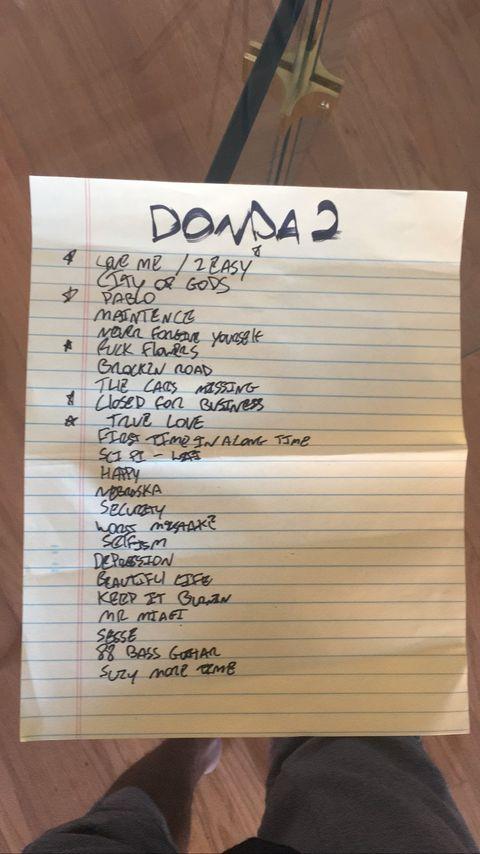 DONDA 2
LOVE ME / 2 EASY
CITY OF GODS
PABLO
MAINTENCE
NEVER FORGIVE YOURSELF
FUCK FLOWERS
BROCKIN ROAD
THE CARS MISSING
CLOSED FOR BUSINESS
TRUE LOVE
FIRST TIME IN A LONG TIME
SCI FI -
HAPPY
NEBRSKA
SECURITY
WORST MISTAKE
SELFISM
DEPRESSION
BEAUTIFUL LIFE
KEEP IT BURNIN
MR MIAGI
SESSE
88 BASS GUITAR
SUZY MORE TIME